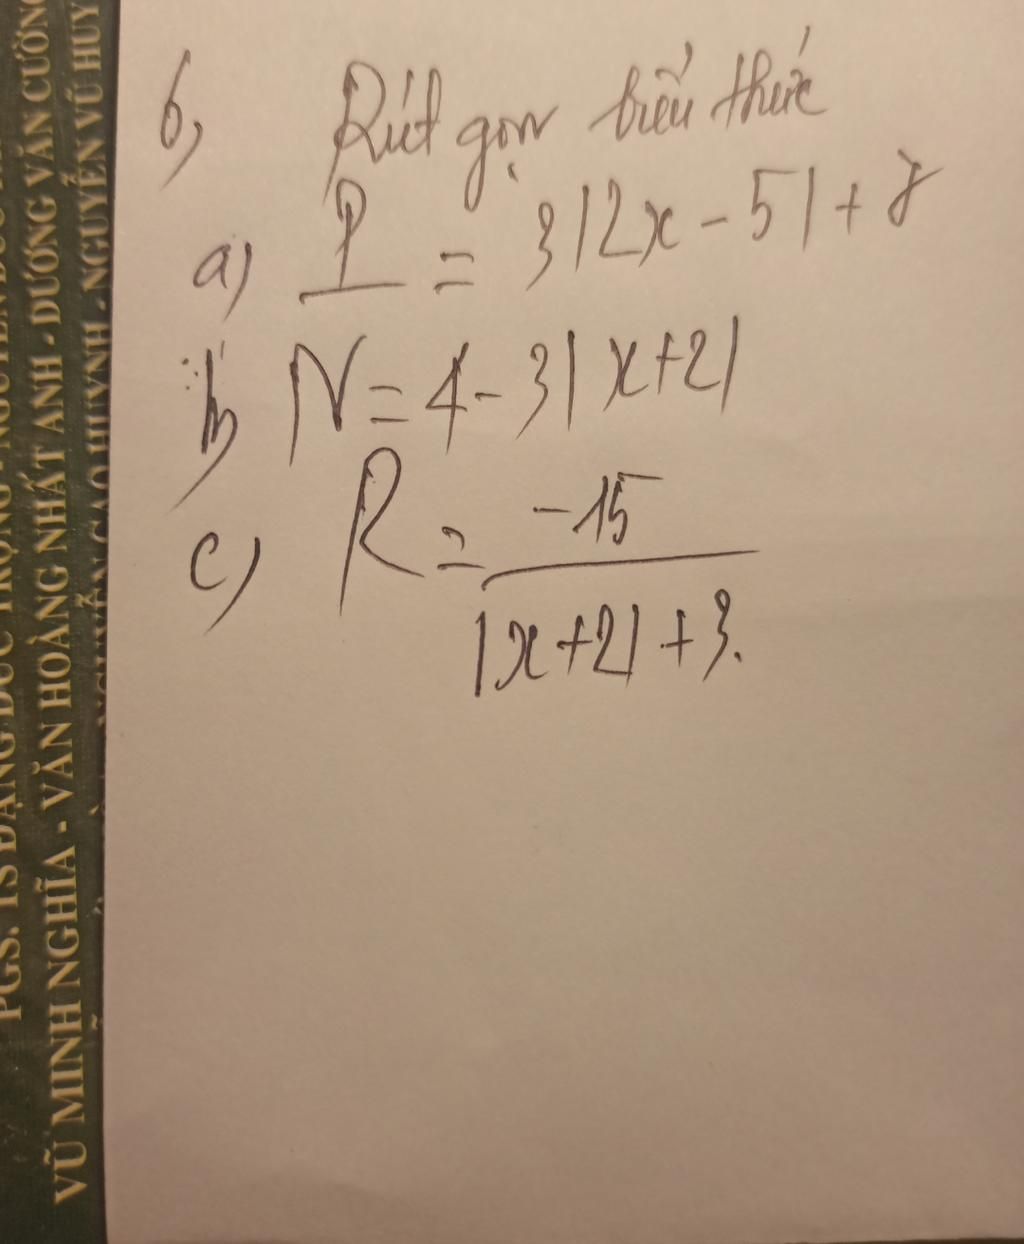 PGS. TS ĐẶNG ĐỨC TRỌNG
VŨ MINH NGHĨA - VĂN HOÀNG NHẤT ANH - DƯƠNG VĂN CƯỜNG
HUỲNH - NGUYỄN VŨ HUY
6, Rút gọn biểu thức
a) P = 3|2x - 5| + 8
b) N = 4 - 3|x+2|
c) R = -15
|x+2| + 3.